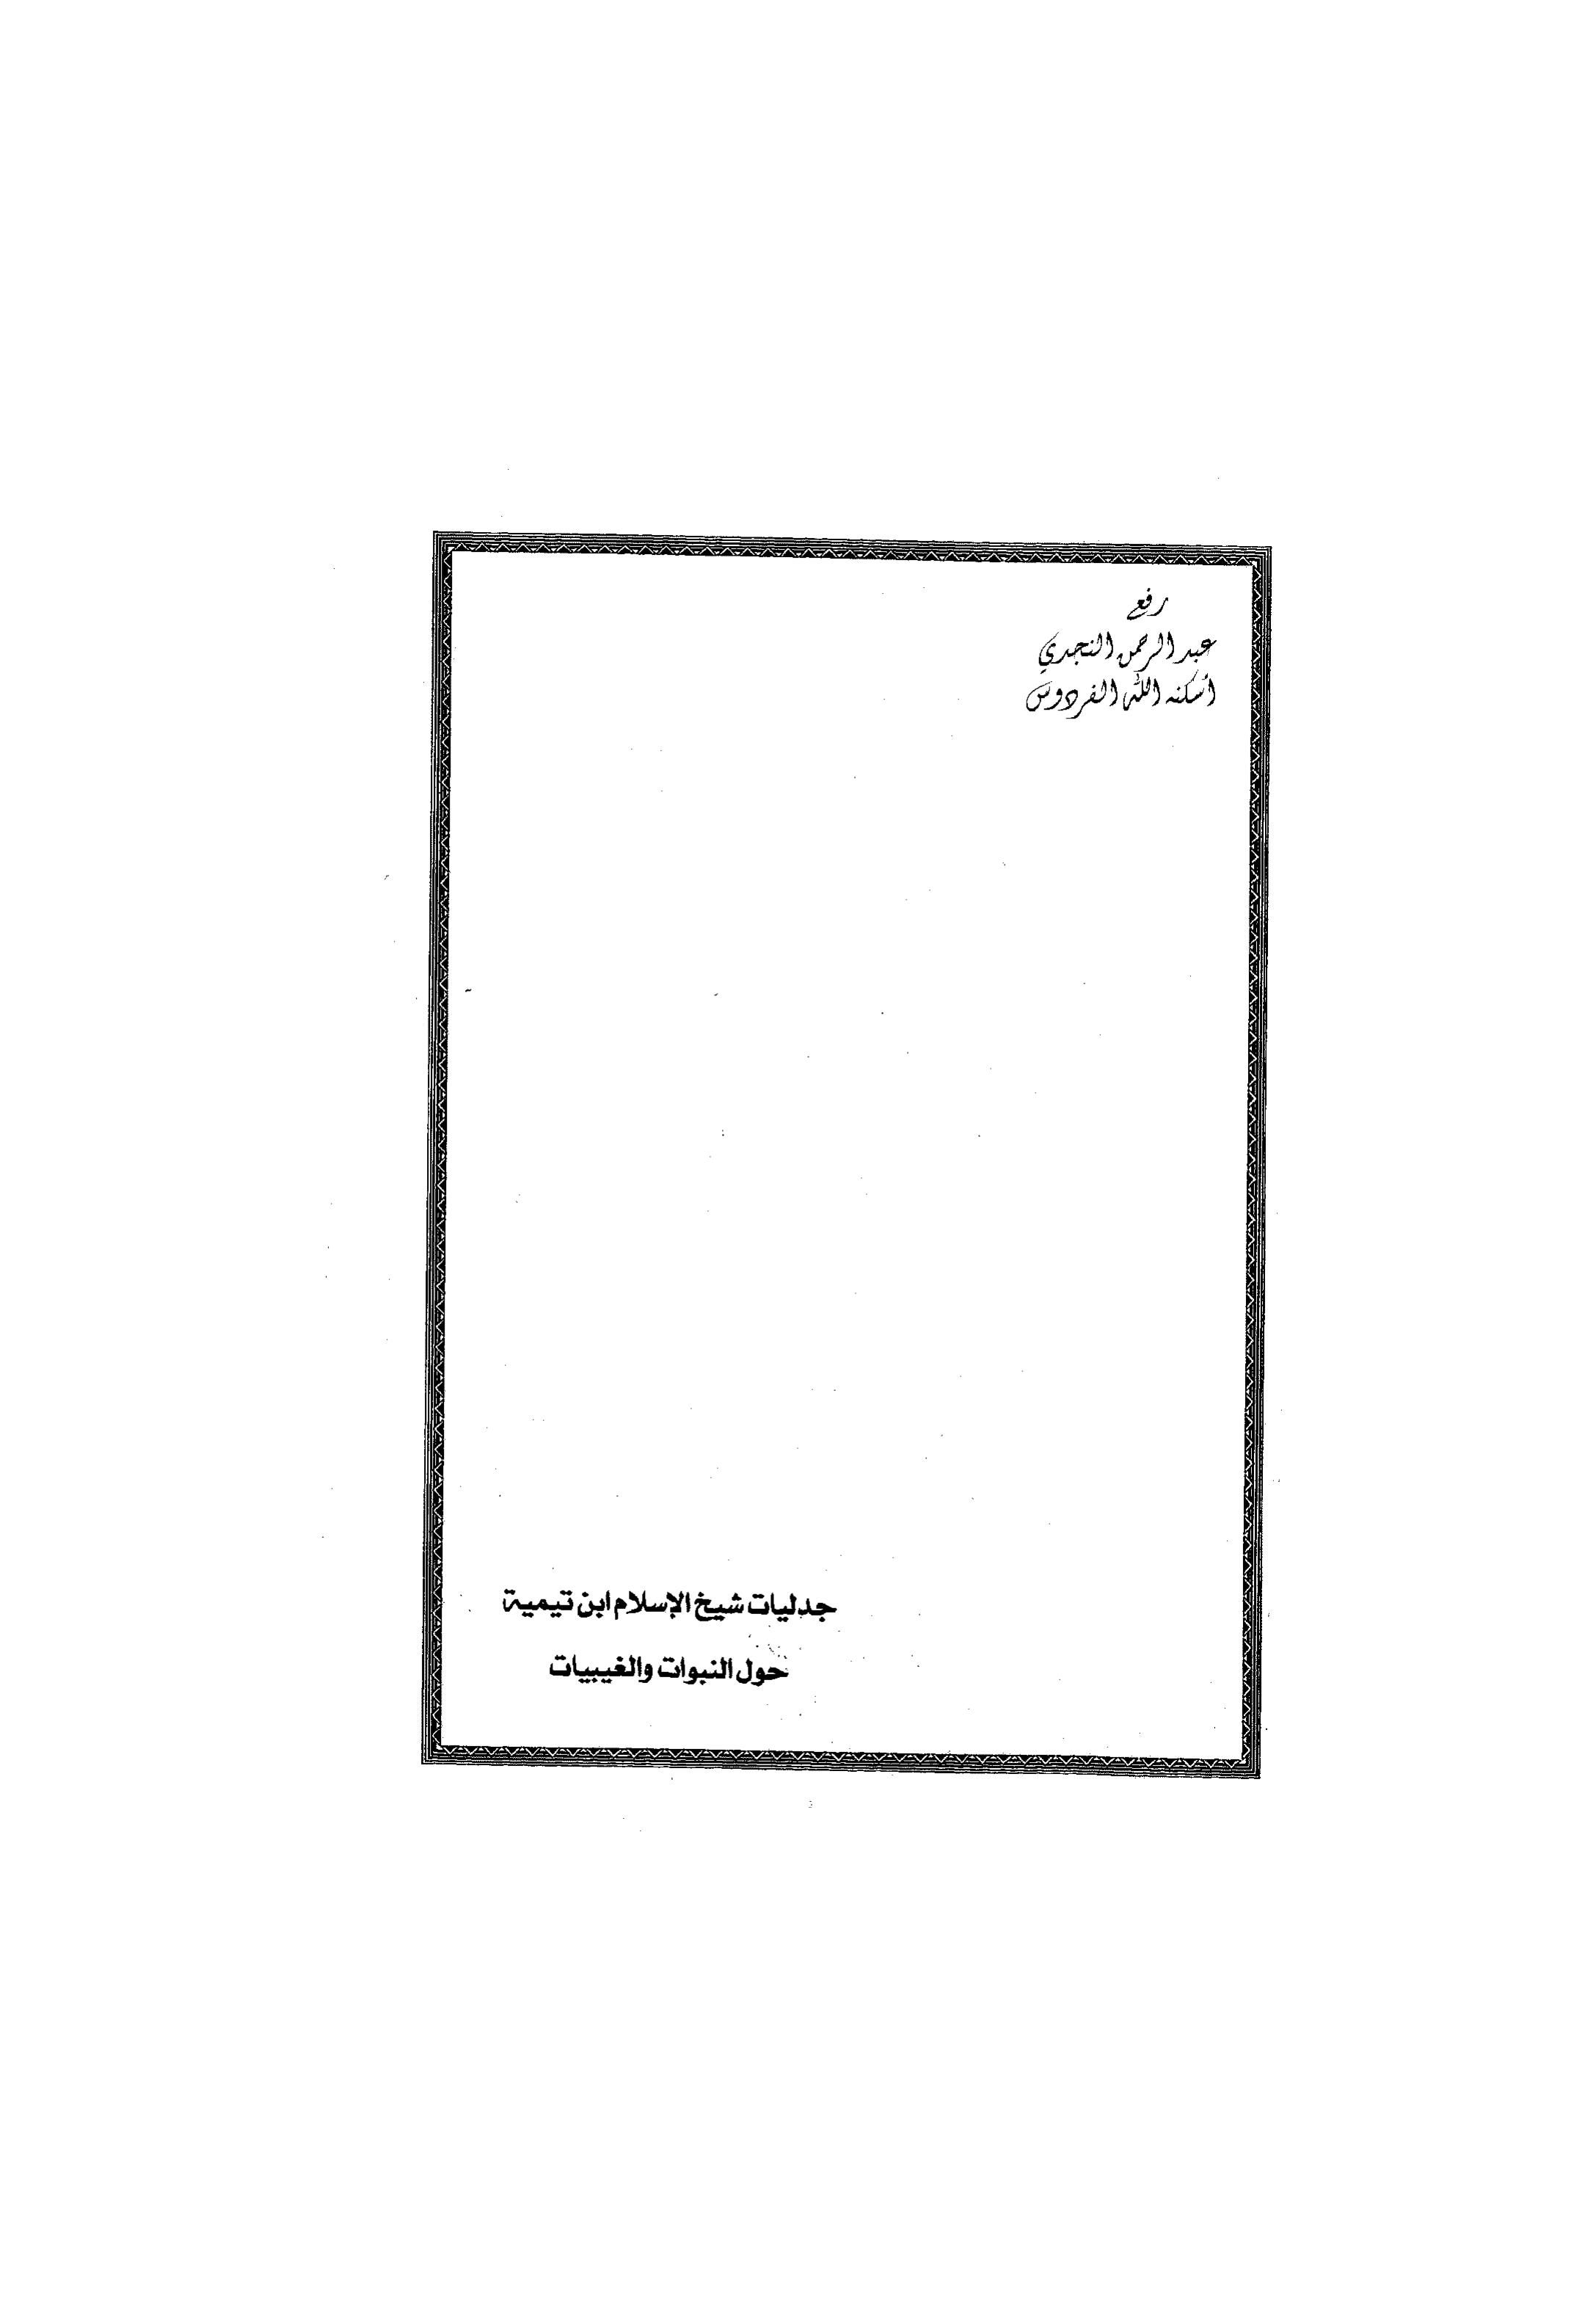 رفع
عبد الرحمن النجدي
أسكنه الله الفردوس
جدليات شيخ الإسلام ابن تيمية
حول النبوات والغيبيات